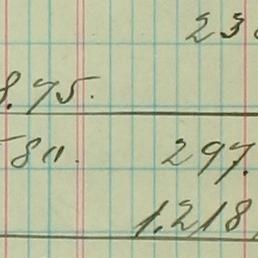 23
8.75.
580. 297.
1.218